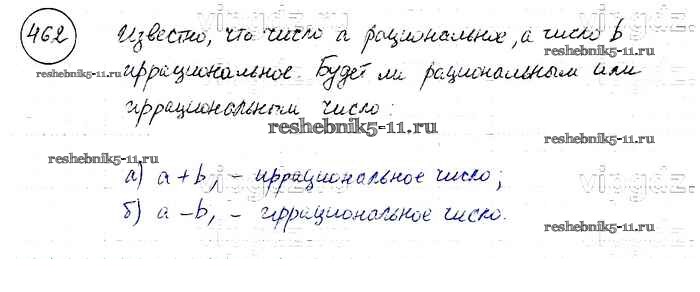 462 Известно, что число a рациональное, а число b
иррациональное. Будет ли рациональным или
иррациональным число:
а) a+b, – иррациональное число;
б) a–b, – иррациональное число.
vipgdz.
reshebnik5-11.ru
reshebnik5-11.ru
reshebnik5-11.ru
reshebnik5-11.ru
vipgdz.
reshebnik5-11.ru